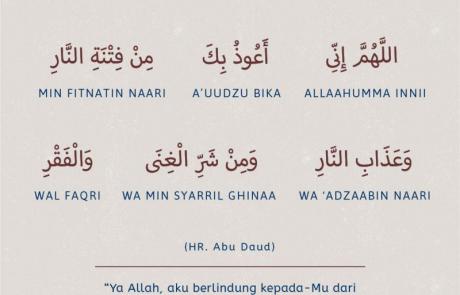 اللَّهُمَّ إِنِّى أَعُوذُ بِكَ مِنْ فِتْنَةِ النَّارِ
MIN FITNATIN NAARI A’UUDZU BIKA ALLAAHUMMA INNII
وَعَذَابِ النَّارِ وَمِنْ شَرِّ الْغِنَى وَالْفَقْرِ
WAL FAQRI WA MIN SYARRIL GHINAA WA ‘ADZAABIN NAARI
(HR. Abu Daud)
“Ya Allah, aku berlindung kepada-Mu dari